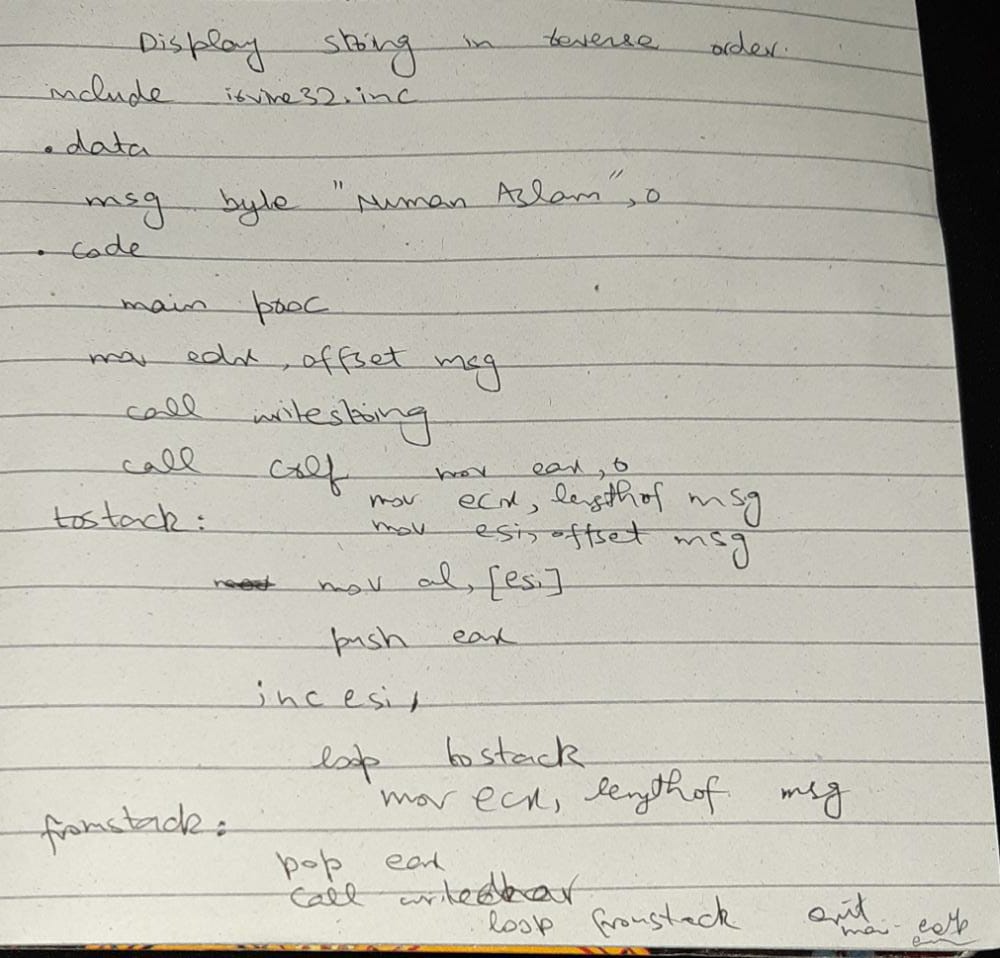 Display string in reverse order.
include irvine32.inc
.data
msg byte "Numan Aslam",0
.code
main proc
mov edx, offset msg
call writestring
call crlf mov eax,0
mov ecx, lengthof msg
tostack: mov esi, offset msg
mov al, [esi]
push eax
inc esi,
loop tostack
mov ecx, lengthof msg
fromstack:
pop eax
call writechar
loop fromstack exit
main endp